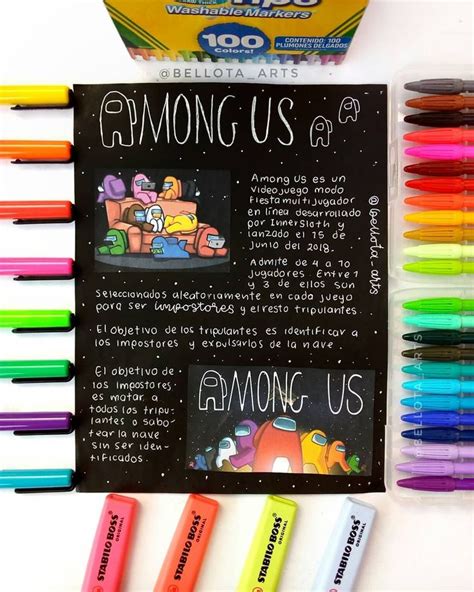 Washable Markers
100
Colors!
CONTENIDO: 100
PLUMONES DELGADOS
@BELLOTA_ARTS
AMONG US
Among Us es un
videojuego modo
fiesta multijugador
en línea desarrollado
por Innersloth y
lanzado el 15 de
junio del 2018.
Admite de 4 a 10
jugadores. Entre 1
y 3 de ellos son
seleccionados aleatoriamente en cada juego
para ser impostores y el resto tripulantes.
El objetivo de los tripulantes es identificar a
los impostores y expulsarlos de la nave.
El objetivo de
los impostores
es matar a
todos los tripu-
lantes o sabo-
tear la nave
sin ser iden-
tificados.
AMONG US
@bellota_arts
@BELLOTA_ARTS
STABILO BOSS
ORIGINAL
STABILO BOSS
ORIGINAL
STABILO BOSS
ORIGINAL
STABILO BOSS
ORIGINAL